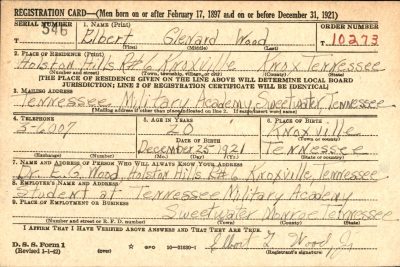 REGISTRATION CARD—(Men born on or after February 17, 1897 and on or before December 31, 1921)
SERIAL NUMBER 1. NAME (Print) ORDER NUMBER
546 Elbert Glenard Wood 10273
(First) (Middle) (Last)
2. PLACE OF RESIDENCE (Print)
Holston Hills R#6 Knoxville Knox Tennessee
(Number and street) (Town, township, village, or city) (County) (State)
[THE PLACE OF RESIDENCE GIVEN ON THE LINE ABOVE WILL DETERMINE LOCAL BOARD
JURISDICTION; LINE 2 OF REGISTRATION CERTIFICATE WILL BE IDENTICAL]
3. MAILING ADDRESS
Tennessee Military Academy Sweetwater Tennessee
[Mailing address if other than place indicated on line 2. If same insert word same]
4. TELEPHONE 5. AGE IN YEARS 6. PLACE OF BIRTH
3-6007 20 Knoxville
DATE OF BIRTH (Town or county)
December 25 1921 Tennessee
(Exchange) (Number) (Mo.) (Day) (Yr.) (State or country)
7. NAME AND ADDRESS OF PERSON WHO WILL ALWAYS KNOW YOUR ADDRESS
Dr. E.G. Wood, Holston Hills R#6 Knoxville, Tennessee
8. EMPLOYER'S NAME AND ADDRESS
Student at Tennessee Military Academy
9. PLACE OF EMPLOYMENT OR BUSINESS
Sweetwater Monroe Tennessee
(Number and street or R. F. D. number) (Town) (County) (State)
I AFFIRM THAT I HAVE VERIFIED ABOVE ANSWERS AND THAT THEY ARE TRUE.
D. S. S. Form 1
(Revised 1-1-42) (over) GPO Wood Jr.
(Registrant's signature)